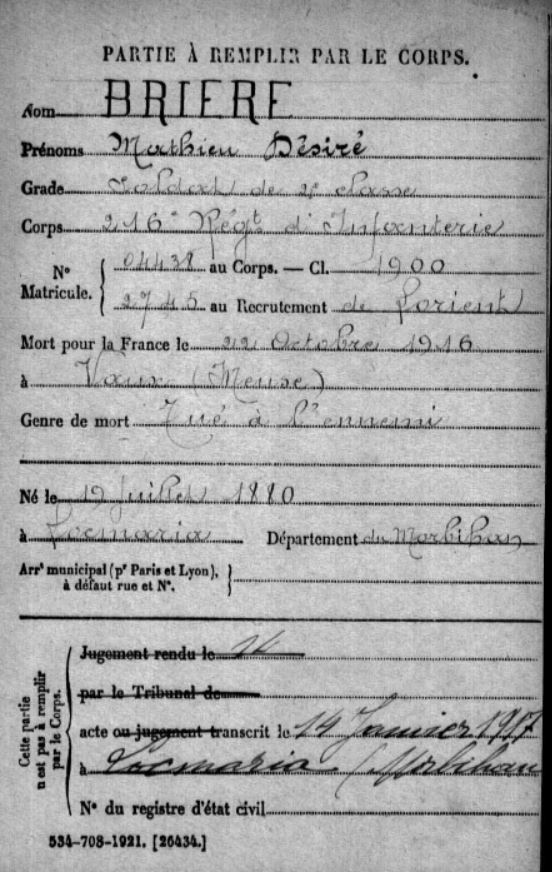 PARTIE À REMPLIR PAR LE CORPS.
Nom BRIERE
Prénoms Mathieu Désiré
Grade Soldat de 2e classe
Corps 216e Régt d'Infanterie
N° Matricule. { 04438 au Corps. — Cl. 1900
2745 au Recrutement de Lorient
Mort pour la France le 22 Octobre 1916
à Vaux (Meuse)
Genre de mort Tué à l'ennemi
Né le 19 Juillet 1880
à Locmaria Département du Morbihan
Arrt municipal (pr Paris et Lyon),
à défaut rue et N°. }
Cette partie n'est pas à remplir par le Corps.
Jugement rendu le 14
par le Tribunal de
acte ou jugement transcrit le 14 Janvier 1917
à Locmaria (Morbihan
N° du registre d'état civil
534-708-1921. [26434.]